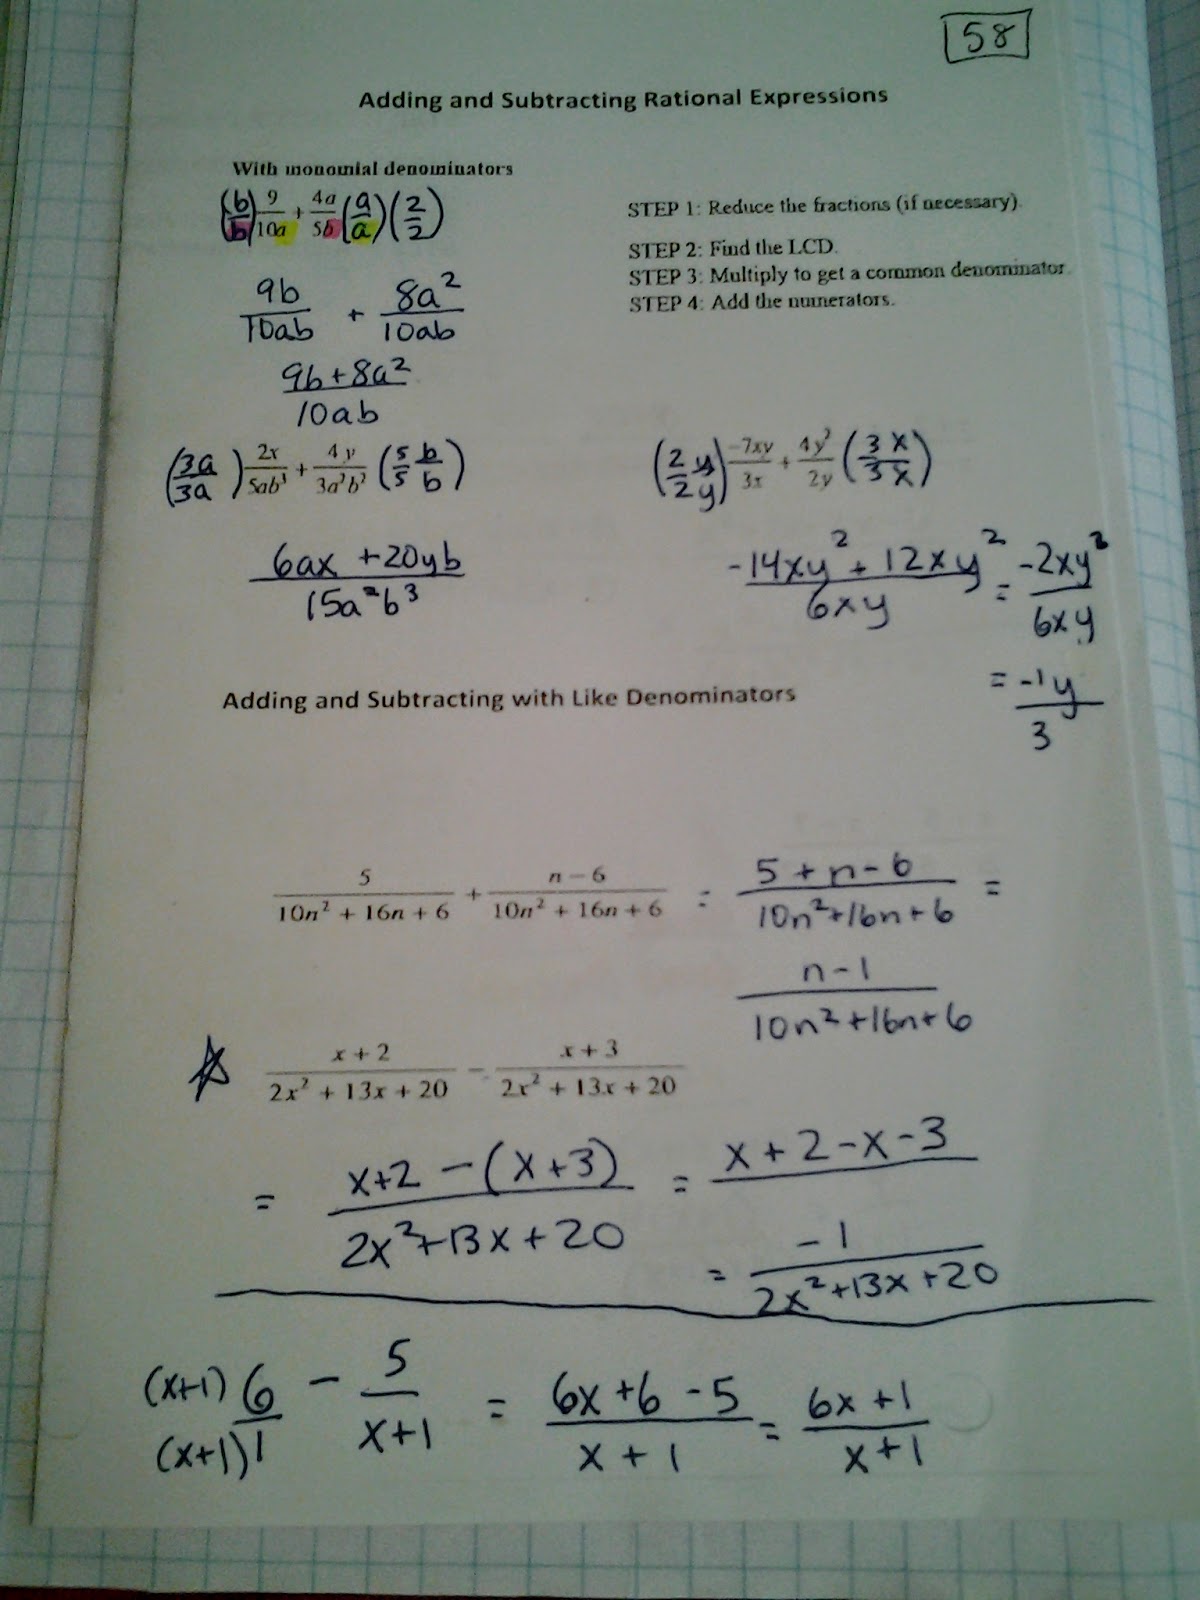 58
Adding and Subtracting Rational Expressions
With monomial denominators
(b/b) 9/10a + 4a/5b (a/a)(2/2)
STEP 1: Reduce the fractions (if necessary).
STEP 2: Find the LCD.
STEP 3: Multiply to get a common denominator.
STEP 4: Add the numerators.
9b/10ab + 8a²/10ab
9b+8a²/10ab
(3a/3a) 2x/5ab³ + 4y/3a²b² (5/5 b/b)
6ax + 20yb/15a²b³
(2y/2y) -7xy/3x + 4y²/2y (3x/3x)
-14xy² + 12xy²/6xy = -2xy²/6xy
= -1y/3
Adding and Subtracting with Like Denominators
5/10n² + 16n + 6 + n − 6/10n² + 16n + 6 = 5 + n - 6/10n²+16n+6 =
n-1/10n²+16n+6
x + 2/2x² + 13x + 20 − x + 3/2x² + 13x + 20
= x+2 - (x+3)/2x²+13x+20 = x+2-x-3
= -1/2x²+13x+20
(x+1)6/(x+1)1 - 5/x+1 = 6x+6-5/x+1 = 6x+1/x+1